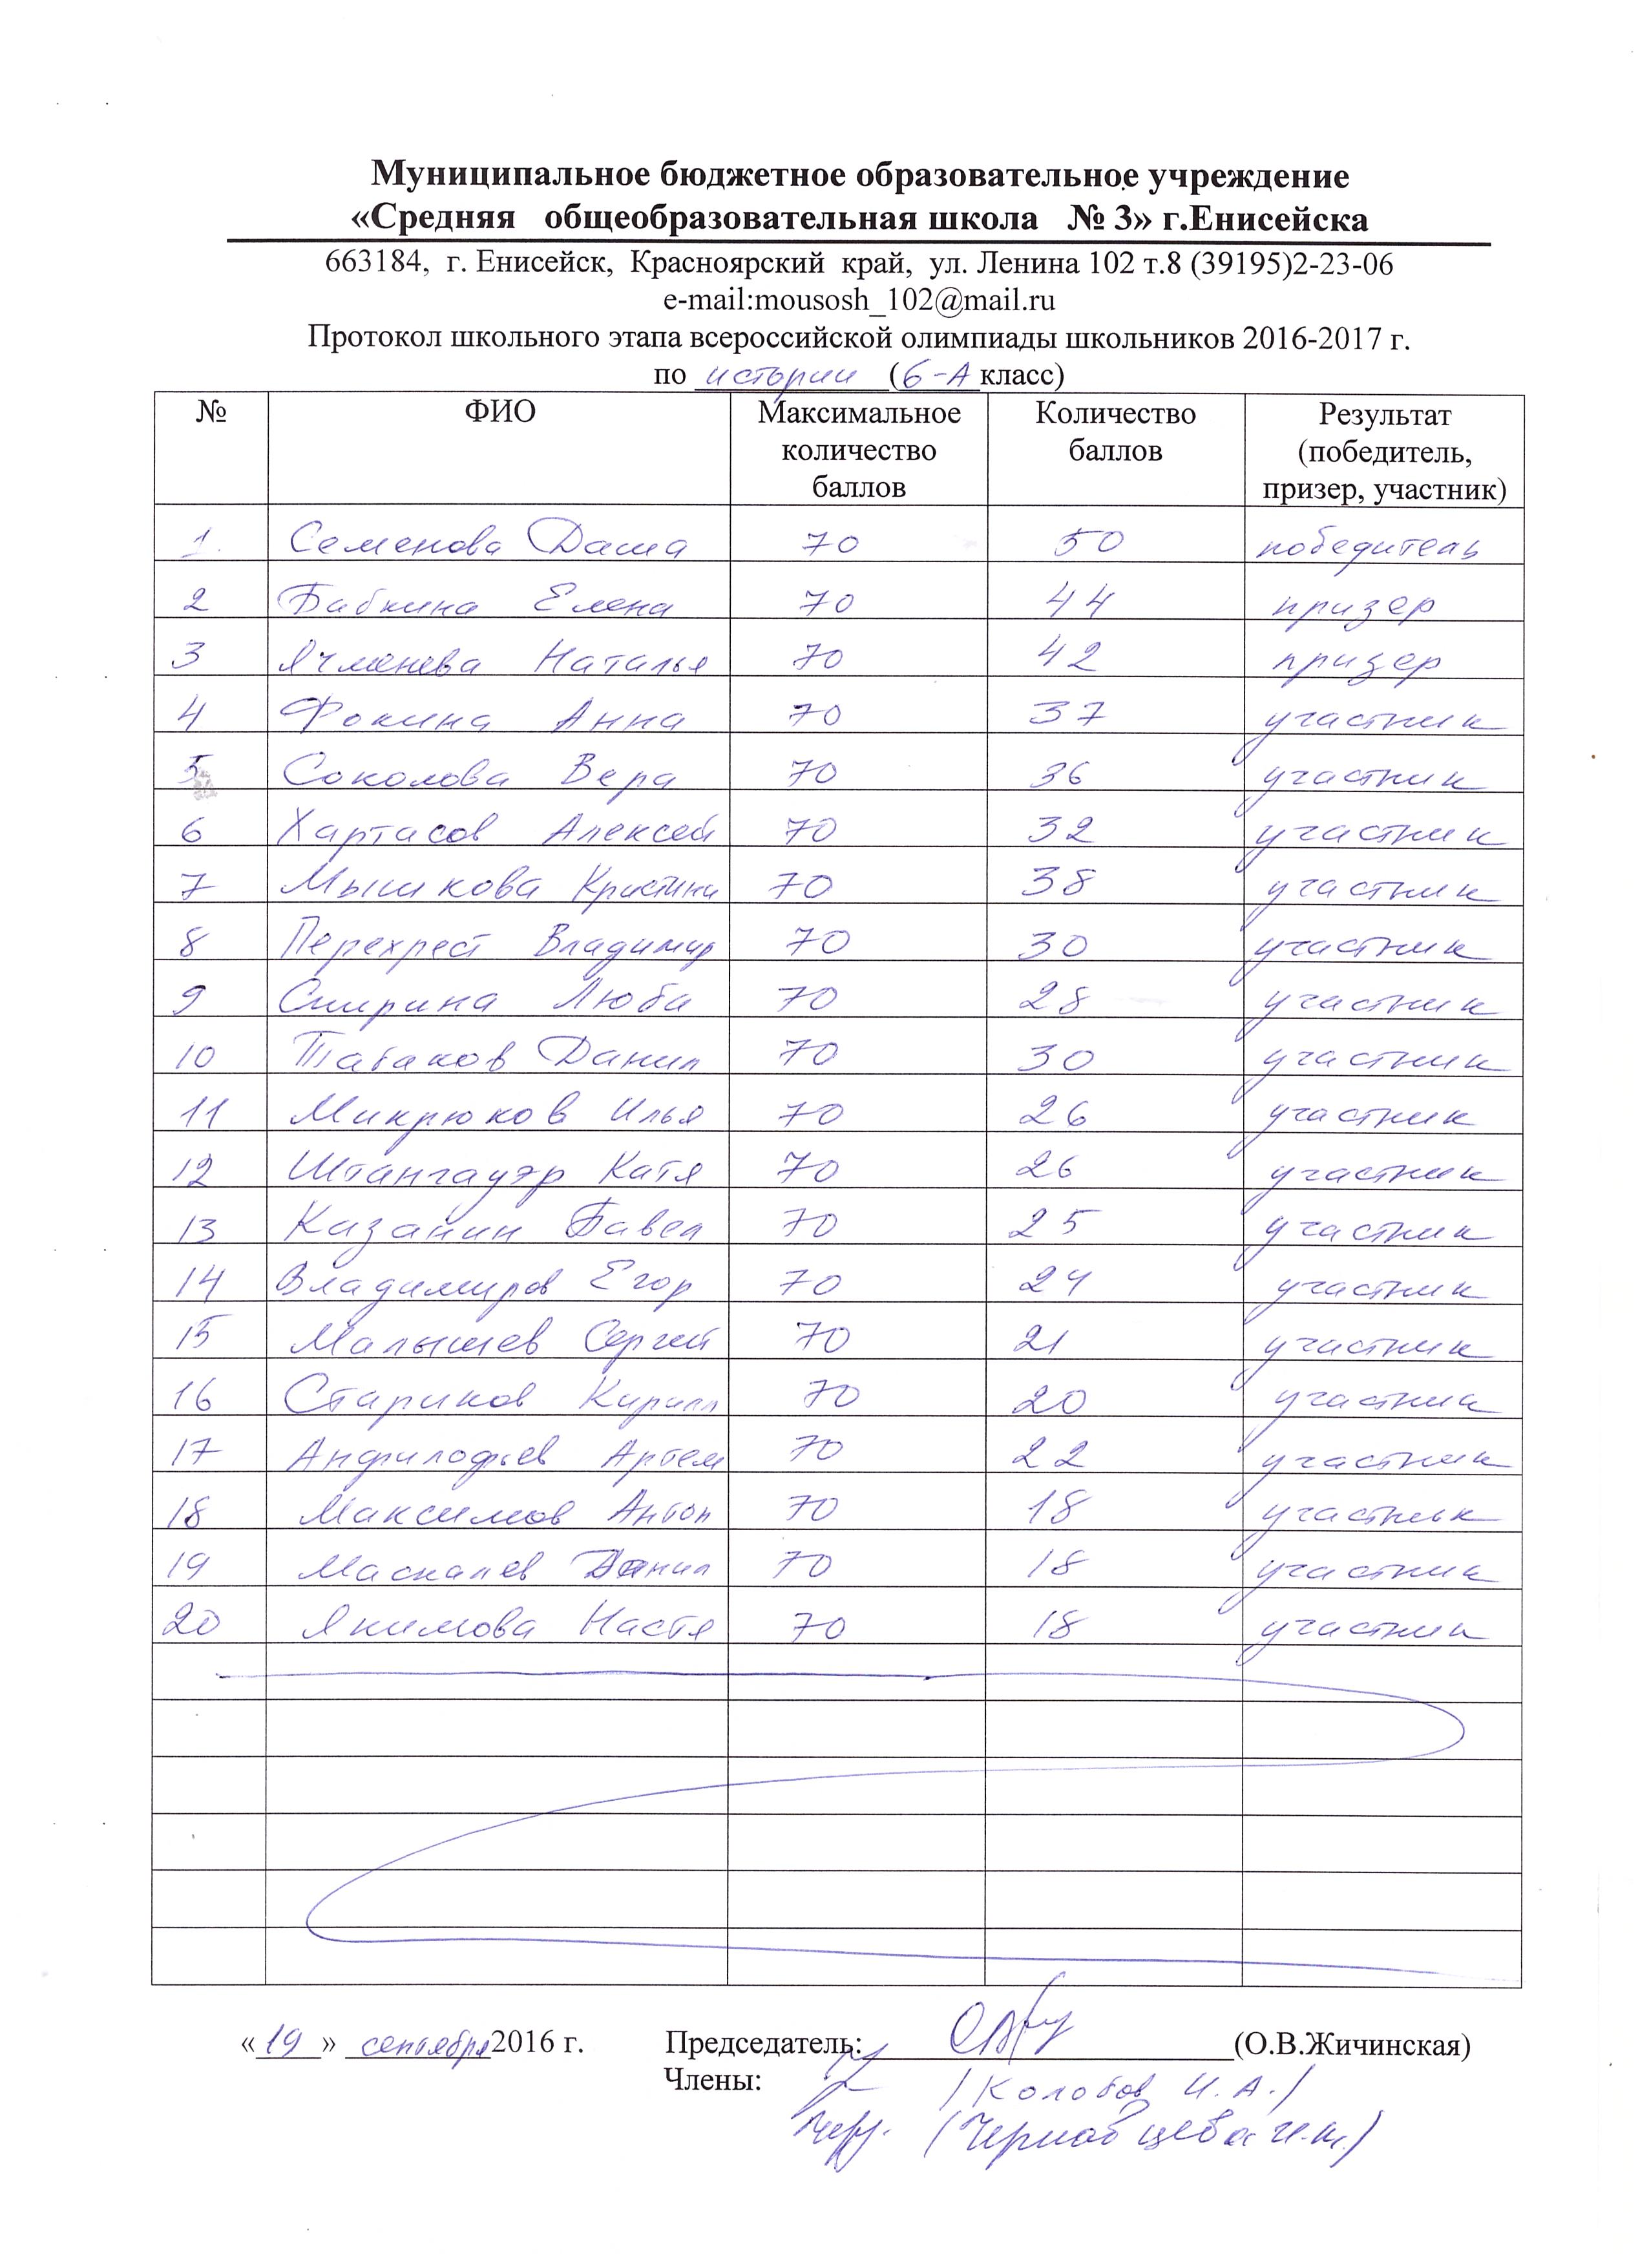 Муниципальное бюджетное образовательное учреждение
«Средняя общеобразовательная школа № 3» г.Енисейска
663184, г. Енисейск, Красноярский край, ул. Ленина 102 т.8 (39195)2-23-06
e-mail:mousosh_102@mail.ru
Протокол школьного этапа всероссийской олимпиады школьников 2016-2017 г.
по истории (6-А класс)
№ ФИО Максимальное количество баллов Количество баллов Результат (победитель, призер, участник)
1. Семенова Даша 70 50 победитель
2 Бабкина Елена 70 44 призер
3 Ячменева Наталья 70 42 призер
4 Фокина Анна 70 37 участник
5 Соколова Вера 70 36 участник
6 Хартасов Алексей 70 32 участник
7 Мышкова Кристина 70 38 участник
8 Перехрест Владимир 70 30 участник
9 Спирина Люба 70 28 участник
10 Табаков Данил 70 30 участник
11 Микрюков Илья 70 26 участник
12 Штангауэр Катя 70 26 участник
13 Казанин Павел 70 25 участник
14 Владимиров Егор 70 24 участник
15 Малышев Сергей 70 21 участник
16 Стариков Кирилл 70 20 участник
17 Анфилофьев Артем 70 22 участник
18 Максимов Антон 70 18 участник
19 Маскалев Данил 70 18 участник
20 Якимова Настя 70 18 участник
«19» сентября 2016 г. Председатель: (О.В.Жичинская)
Члены: /Колобов И.А./